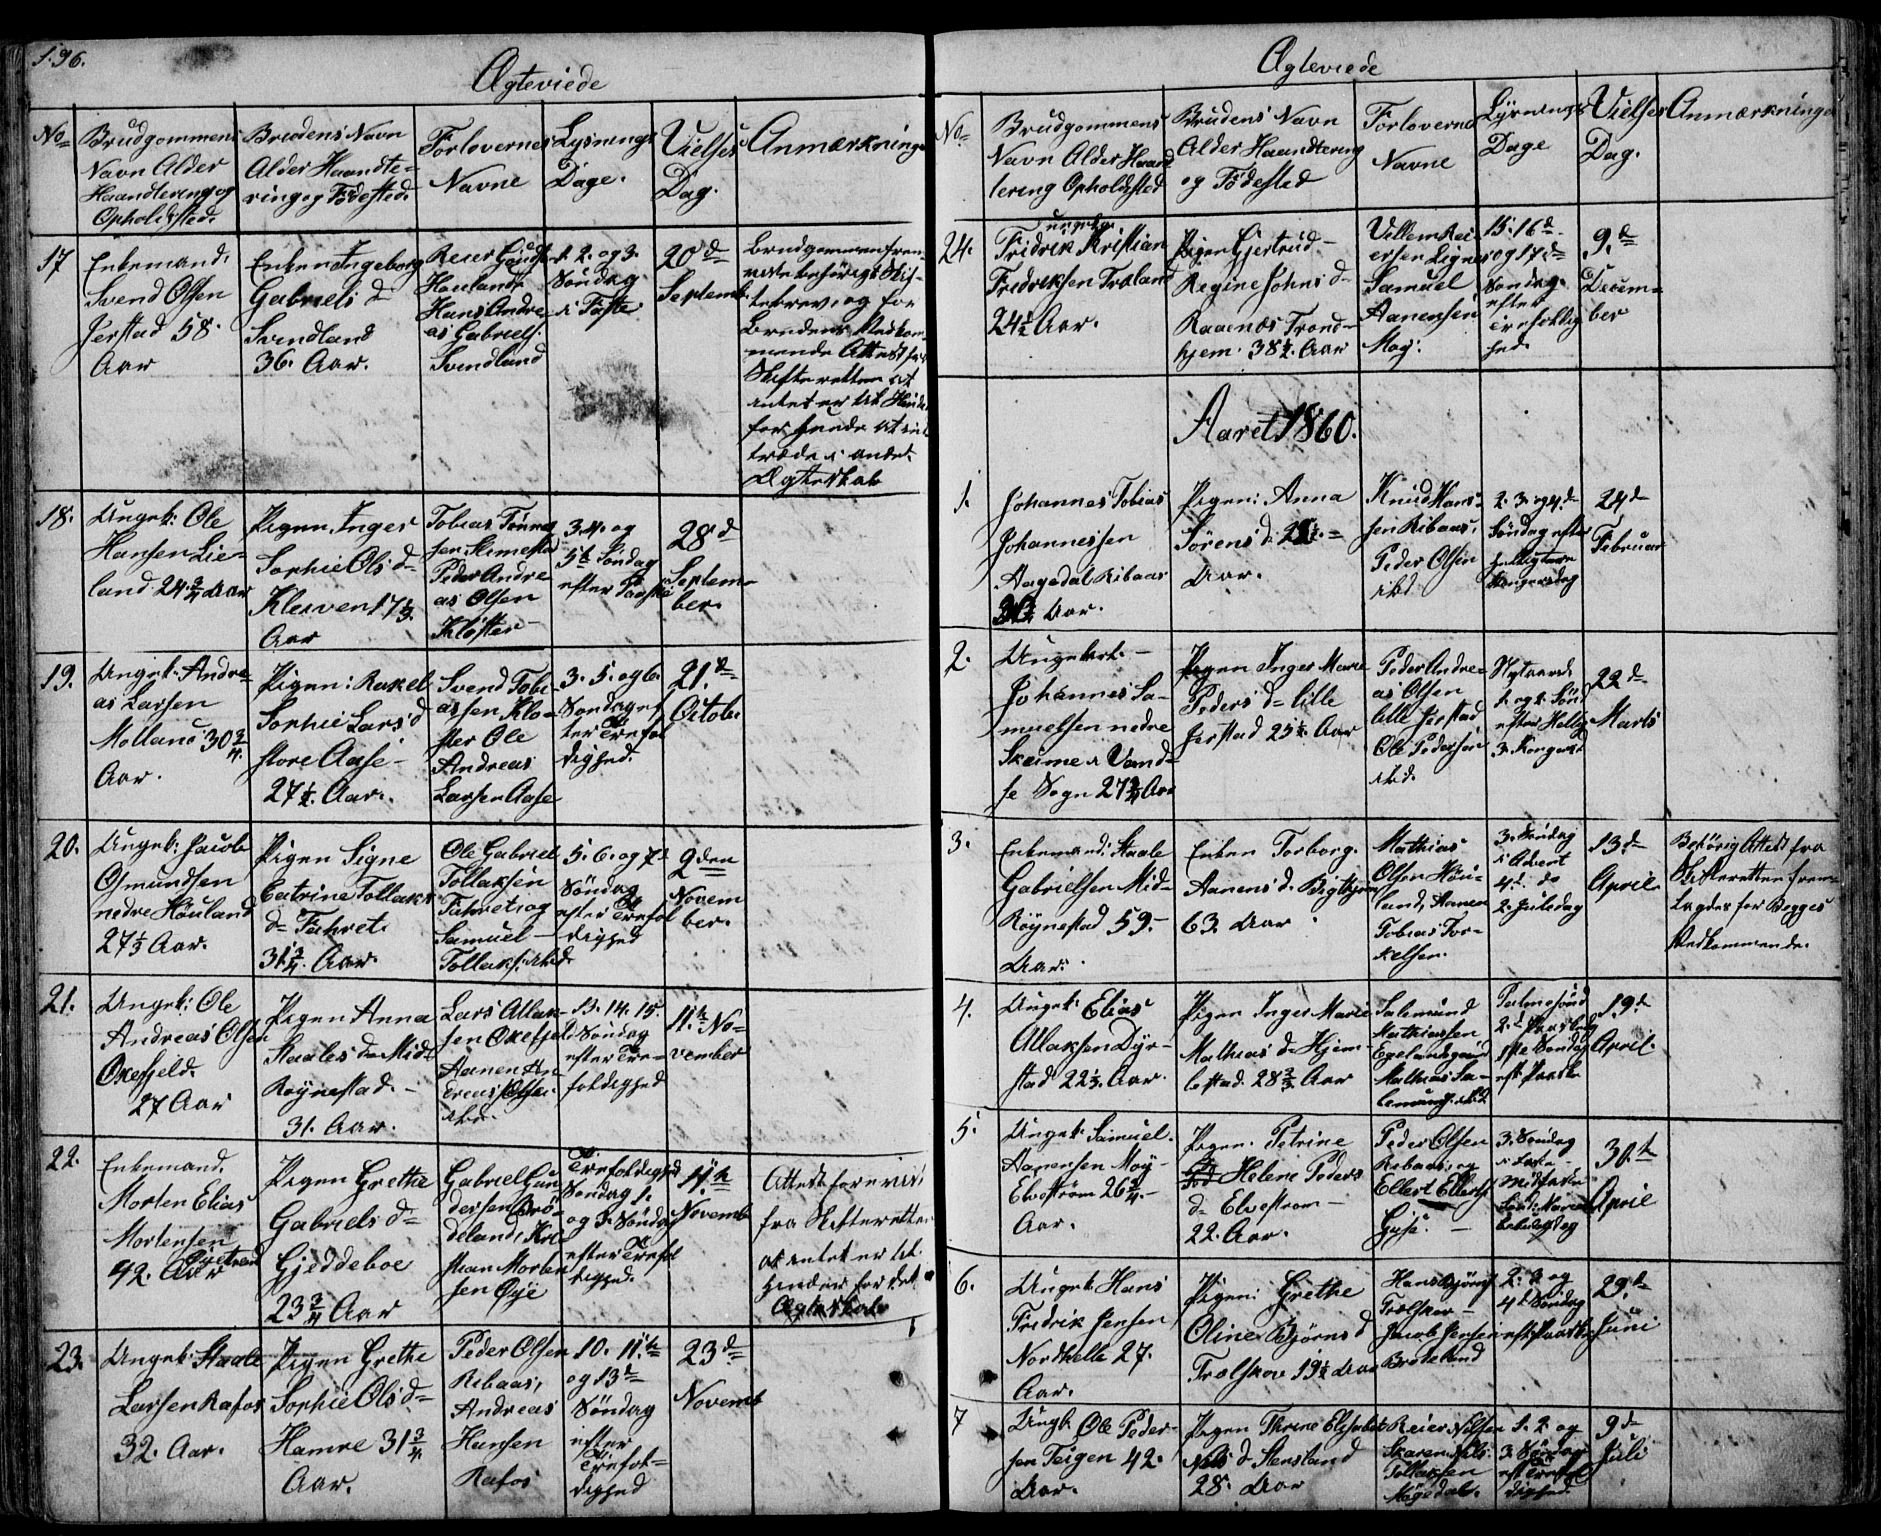 196.
Ægteviede
No
Brudgommens
Navn Alder
Haandtering og
Opholdssted.
Brudens Navn
Alder Haandte-
ring og Födested.
Forlovernes
Navne
Lysnings
Dage.
Vielses
Dag.
Anmærkninge
17
Enkemand.
Svend Olsen
Jerstad 58.
Aar
Enken Ingeborg
Gabriels d
Svindland
36. Aar.
Reier
Houland
Hans Andre-
as Gabriels.
Svindland
1. 2. og 3.
Söndag
i Faste
20d
Septemb.
Brudgommen frem-
viste behörigt Skif-
tebrev, og for
Bruden Vedkom-
mende Attest fra
Skifteretten at
intet er til Hinder
for hende at ind
træde i andet
Ægteskab
18.
Ungk: Ole
Hansen Lie-
land 24 3/4 Aar
Pigen Inger
Sophie Ols d
Kleiven 17 1/3.
Aar
Tobias Tönnes
sen Skimestad
Peder Andre
as Olsen
Kloster
3. 4. og
5te Söndag
efter Paaske
28d
Septem-
ber.
19.
Ungk: Andre-
as Larsen
Molland 30 3/4.
Aar.
Pigen: Rakel
Sophie Lars d
store Aase
27 1/2. Aar.
Svend Tobi-
assen Klo-
ster Ole
Andreas
Larsen Aase
3. 5. og 6.
Söndag ef
ter Trefol
dighed.
21.d
Octob.
20.
Ungk: Jacob
Osmundsen
nedre Höuland
27 1/3 Aar.
Pigen Signe
Catrine Tollaks
d Fahret.
31 3/4. Aar.
Ole Gabriel
Tollaksen
Fahret og
Samuel
Tollaks. ibid.
5. 6. og 7
Söndag
efter Trefol
dighed
9den
Novem
ber.
21.
Ungk: Ole
Andreas Olsen
Okefjeld.
27 Aar
Pigen Anna
Staales d Mid-
Röynestad.
31. Aar.
Lars Atlak-
sen Okefjeld
Aanen An
dreas Olsen
ibid.
13. 14. 15.
Söndag
efter Tre-
foldighed
11.te No-
vember
22.
Enkemand.
Morten Elias
Mortensen
42. Aar
Pigen Grethe
Gabriels d
Gjeddeboe
23 3/4 Aar
Gabriel Gun
dersen Brö-
deland, Kri
stian Morten
sen Öye
Trefoldighed
Söndag 1.
og 3. Söndag
efter Trefol
dighed.
11.te
Novemb
Attest forevist
fra Skifteretten
at intet er til
hinder for det
Ægteskab
23.
Ungk: Staale
Larsen Rafos
32. Aar.
Pigen Grethe
Sophie Ols d
Hamre 31 3/4
Aar.
Peder Olsen
Ribaas,
Andreas
Hansen
Rafos
10. 11.te
og 13d
Söndag
efter
Trefol-
dighed
23d
Novemb
Ægteviede
No
Brudgommens
Navn Alder Haand
tering Opholdsted
Brudens Navn
Alder Haandtering
og Födested
Forloverne
Navne
Lysnings
Dage
Vielses
Dag.
Anmærkninge
24.
Ungekar
Fridrik Kristian
Fredriksen Træland
24 1/2 Aar.
Pigen Gjertrud
Regine Johns d
Raaenæs Trond-
hjem. 38 1/2. Aar
Villem Rei-
ersen
Samuel
Aanensen
Moy:
15. 16d
og 17d
Söndag
efter
trefoldig
hed.
9.d
Decem-
ber
Aaret 1860.
1.
Johannes Tobias
Johannessen
Aagedal Ribaas
Aar.
Pigen: Anna
Sörens d
Aar.
Knud Hans-
sen Ribaas,
Peder Olsen
ibid
2. 3. og 4.d
Söndag efter
hellig tre
Kongersdag
24d
Februar
2.
Ungekarl.
Johannes Sa-
muelsen nedre
Skeime i Vand-
se Sogn 27 3/4 Aar
Pigen Inger Marie
Peders d lille
Jerstad 25 1/2 Aar
Peder Andre-
as Olsen
lille Jerstad
Ole Pedersen
ibid.
Nytaarsd
1. og 2. Sönd
efter Hellig
3. Konger
22d
Marts
3.
Enkemand: Staale
Gabrielsen Mid-
Röynestad 59.
Aar.
Enken Torborg.
Aanens d. Birkhjem
63. Aar
Mathias
Olsen Höu-
land, Aanen
Tobias Tor-
kelsen.
3. Söndag
i Advent
4.d do
2. Juledag
13.d
April
Behörig Attest fra
Skifteretten frem-
lagdes for Begges
Vedkommende.
4.
Ungk: Elias
Atlaksen Dyr-
stad 22 1/3. Aar.
Pigen Inger Marie
Mathias d Hjem-
lestad. 28 2/3 Aar
Salemund
Mathiassen
Egelandsgaard
Mathias Sa-
lemunds. ibid
Palmesönd
2.d Paaskedag
1ste Söndag
eft. Paaske
19.d
April.
5.
Ungk: Samuel.
Aanensen Moy
Elveström 26 3/4.
Aar.
Pigen. Petrine
Helene Peders
d Elvestrom
22. Aar.
Peder Olsen
Ribaas, og
Ellert Ellerts.
Gyse.
3. Söndag
i Faste
Midfaste
Sönd: Mariæ
bebudelsdag
30.te
April
6.
Ungk: Hans
Fredrik Jensen
Nordhelle 27.
Aar.
Pigen: Grethe
Oline Björns d
Trælskov 19 1/2 Aar
Hans Björns.
Trælskov
Jacob Jensen
Brödeland
2. 3. og
4d Söndag
eft. Paaske
29.d
Juni
7
Ungk Ole Peder-
sen Teigen 42.
Aar.
Pigen Thrine Elisabet
Nils d Stensland
28. Aar
Reier Nilsen
Skaren Nils
Tollaksen
Mögedal.
1. 2. og
3. Söndag
eft Trefol
dighed
9d
Juli